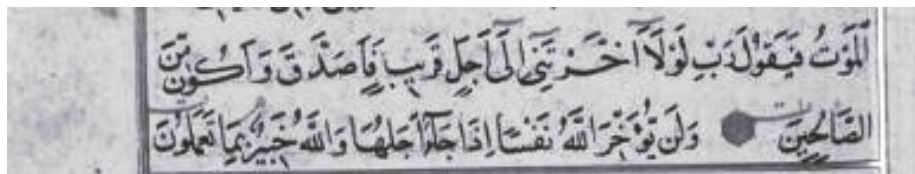 الْمَوْتُ فَيَقُولَ رَبِّ لَوْلَآ اَخَّرْتَنِىٓ اِلٰٓى اَجَلٍ قَرِيبٍ فَاَصَّدَّقَ وَاَكُونَ مِنَ
الصَّالِحِينَ وَلَنْ يُؤَخِّرَ اللّٰهُ نَفْسًا اِذَا جَآءَ اَجَلُهَا وَاللّٰهُ خَبِيرٌ بِمَا تَعْمَلُونَ